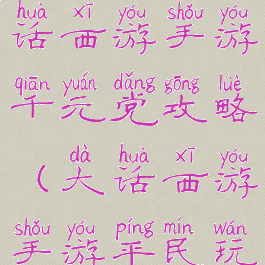 huà xī yóu shǒu yóu
话西游手游
qiān yuán dǎng gōng lüè
千元党攻略
dà huà xī yóu
（大话西游
shǒu yóu píng mín wán
手游平民玩